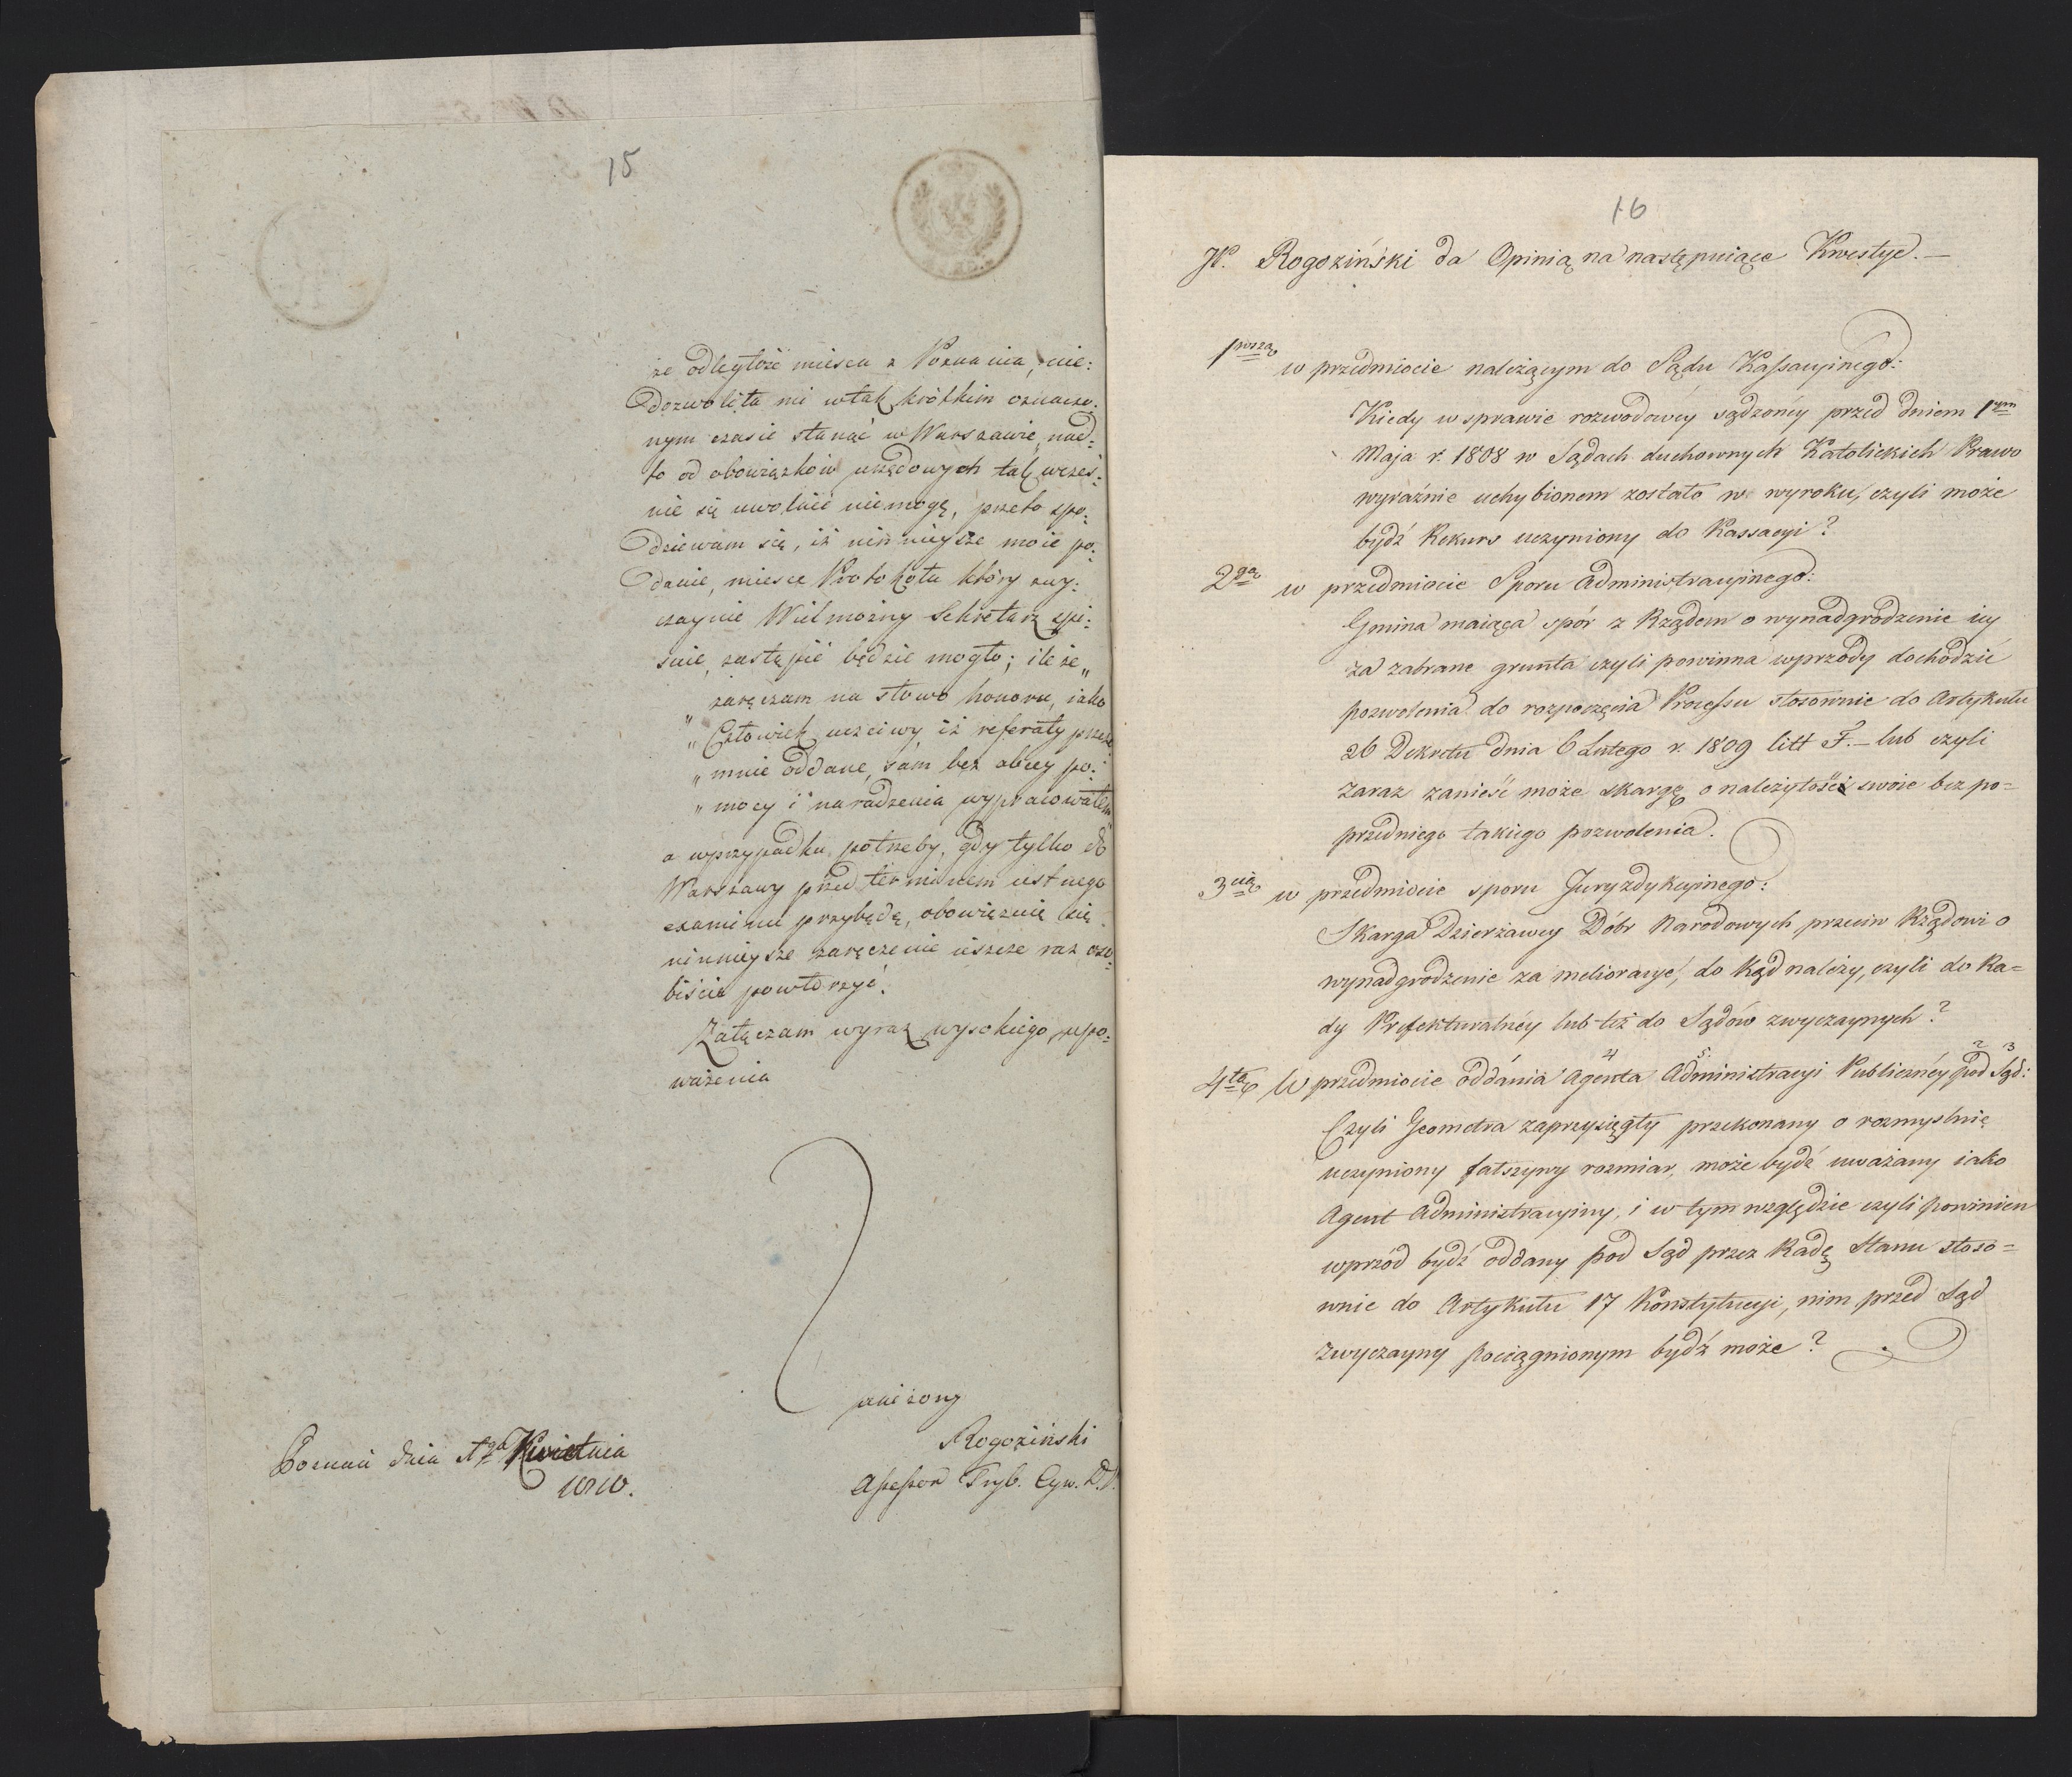 15
że odległość mieysca z Poznania, nie:
dozwoliła mi wtak krótkim oznaczo:
nym czasie stanąć w Warszawie, nad:
to od obowiązków urzędowych tak wcześ:
nie się uwolnić niemogę, przeto spo:
dziewam się, iż ninnieysze moie po:
danie, miesce Protokołu który zwy:
czaynie Wielmożny Sekretarz spi:
suie, zastąpić będzie mogło; ile że „
„ zaręczam na słowo honoru, iako
„ Człowiek uczciwy iż referaty przeze
„ mnie oddane, sam bez obcey po:
„ mocy i naradzenia wypracowałem„
a wprzypadku potrzeby, gdy tylko do
Warszawy przed terminem ustnego
examinu przybędę, obowięzuię się
ninnieysze zaręczenie ieszcze raz oso:
biście powtórzyć.
Załączam wyraz wysokiego upo:
ważenia
uniżony
Rogoziński
Assessor Tryb. Cyw. D. P.
Poznań dnia Kwietnia
1810.
16
JP. Rogoziński da Opinią na następuiące Kwestye.—
1wszą w przedmiocie należącym do Sądu Kassacyinego:
Kiedy w sprawie rozwodowéy sądzonéy przed dniem 1wym
Maja r. 1808 w Sądach duchownych Katolickich Prawo
wyraźnie uchybionem zostało w wyroku, czyli może
bydź Rekurs uczyniony do Kassacyi?
2gą w przedmiocie Sporu Administracyinego:
Gmina maiąca spór z Rządem o wynadgrodzenie iey
za zabrane grunta czyli powinna wprzódy dochodzić
pozwolenia do rozpoczęcia Processu stosownie do Artykułu
26 Dekretu dnia 6 Lutego r. 1809 litt F.— lub czyli
zaraz zanieść może skargę o należytość swoie bez po=
przedniego takiego pozwolenia.
3cią w przedmiocie sporu Juryzdykcyinego:
Skarga Dzierżawcy Dóbr Narodowych przeciw Rządowi o
wynadgrodzenie za melioracye, do kąd należy, czyli do Ra=
dy Prefekturalnéy lub też do Sądów zwyczaynych?
4tą W przedmiocie oddania Agenta Administracyi Publicznéy pod Sąd:
4 5 2 3
Czyli Geometra zaprzysięgły przekonany o rozmyslnie
uczyniony fałszywy rozmiar, może bydź uważany iako
Agent Administracyiny, i w tym względzie czyli powinien
wprzód bydź oddany pod Sąd przez Radę Stanu stoso=
wnie do Artykułu 17 Konstytucyi, nim przed Sąd
zwyczayny pociągnionym bydź może?